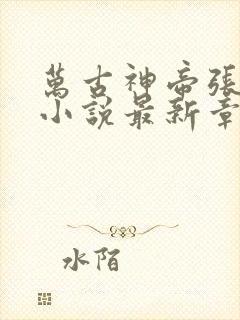 萬古神帝張
小說最新章
水陌